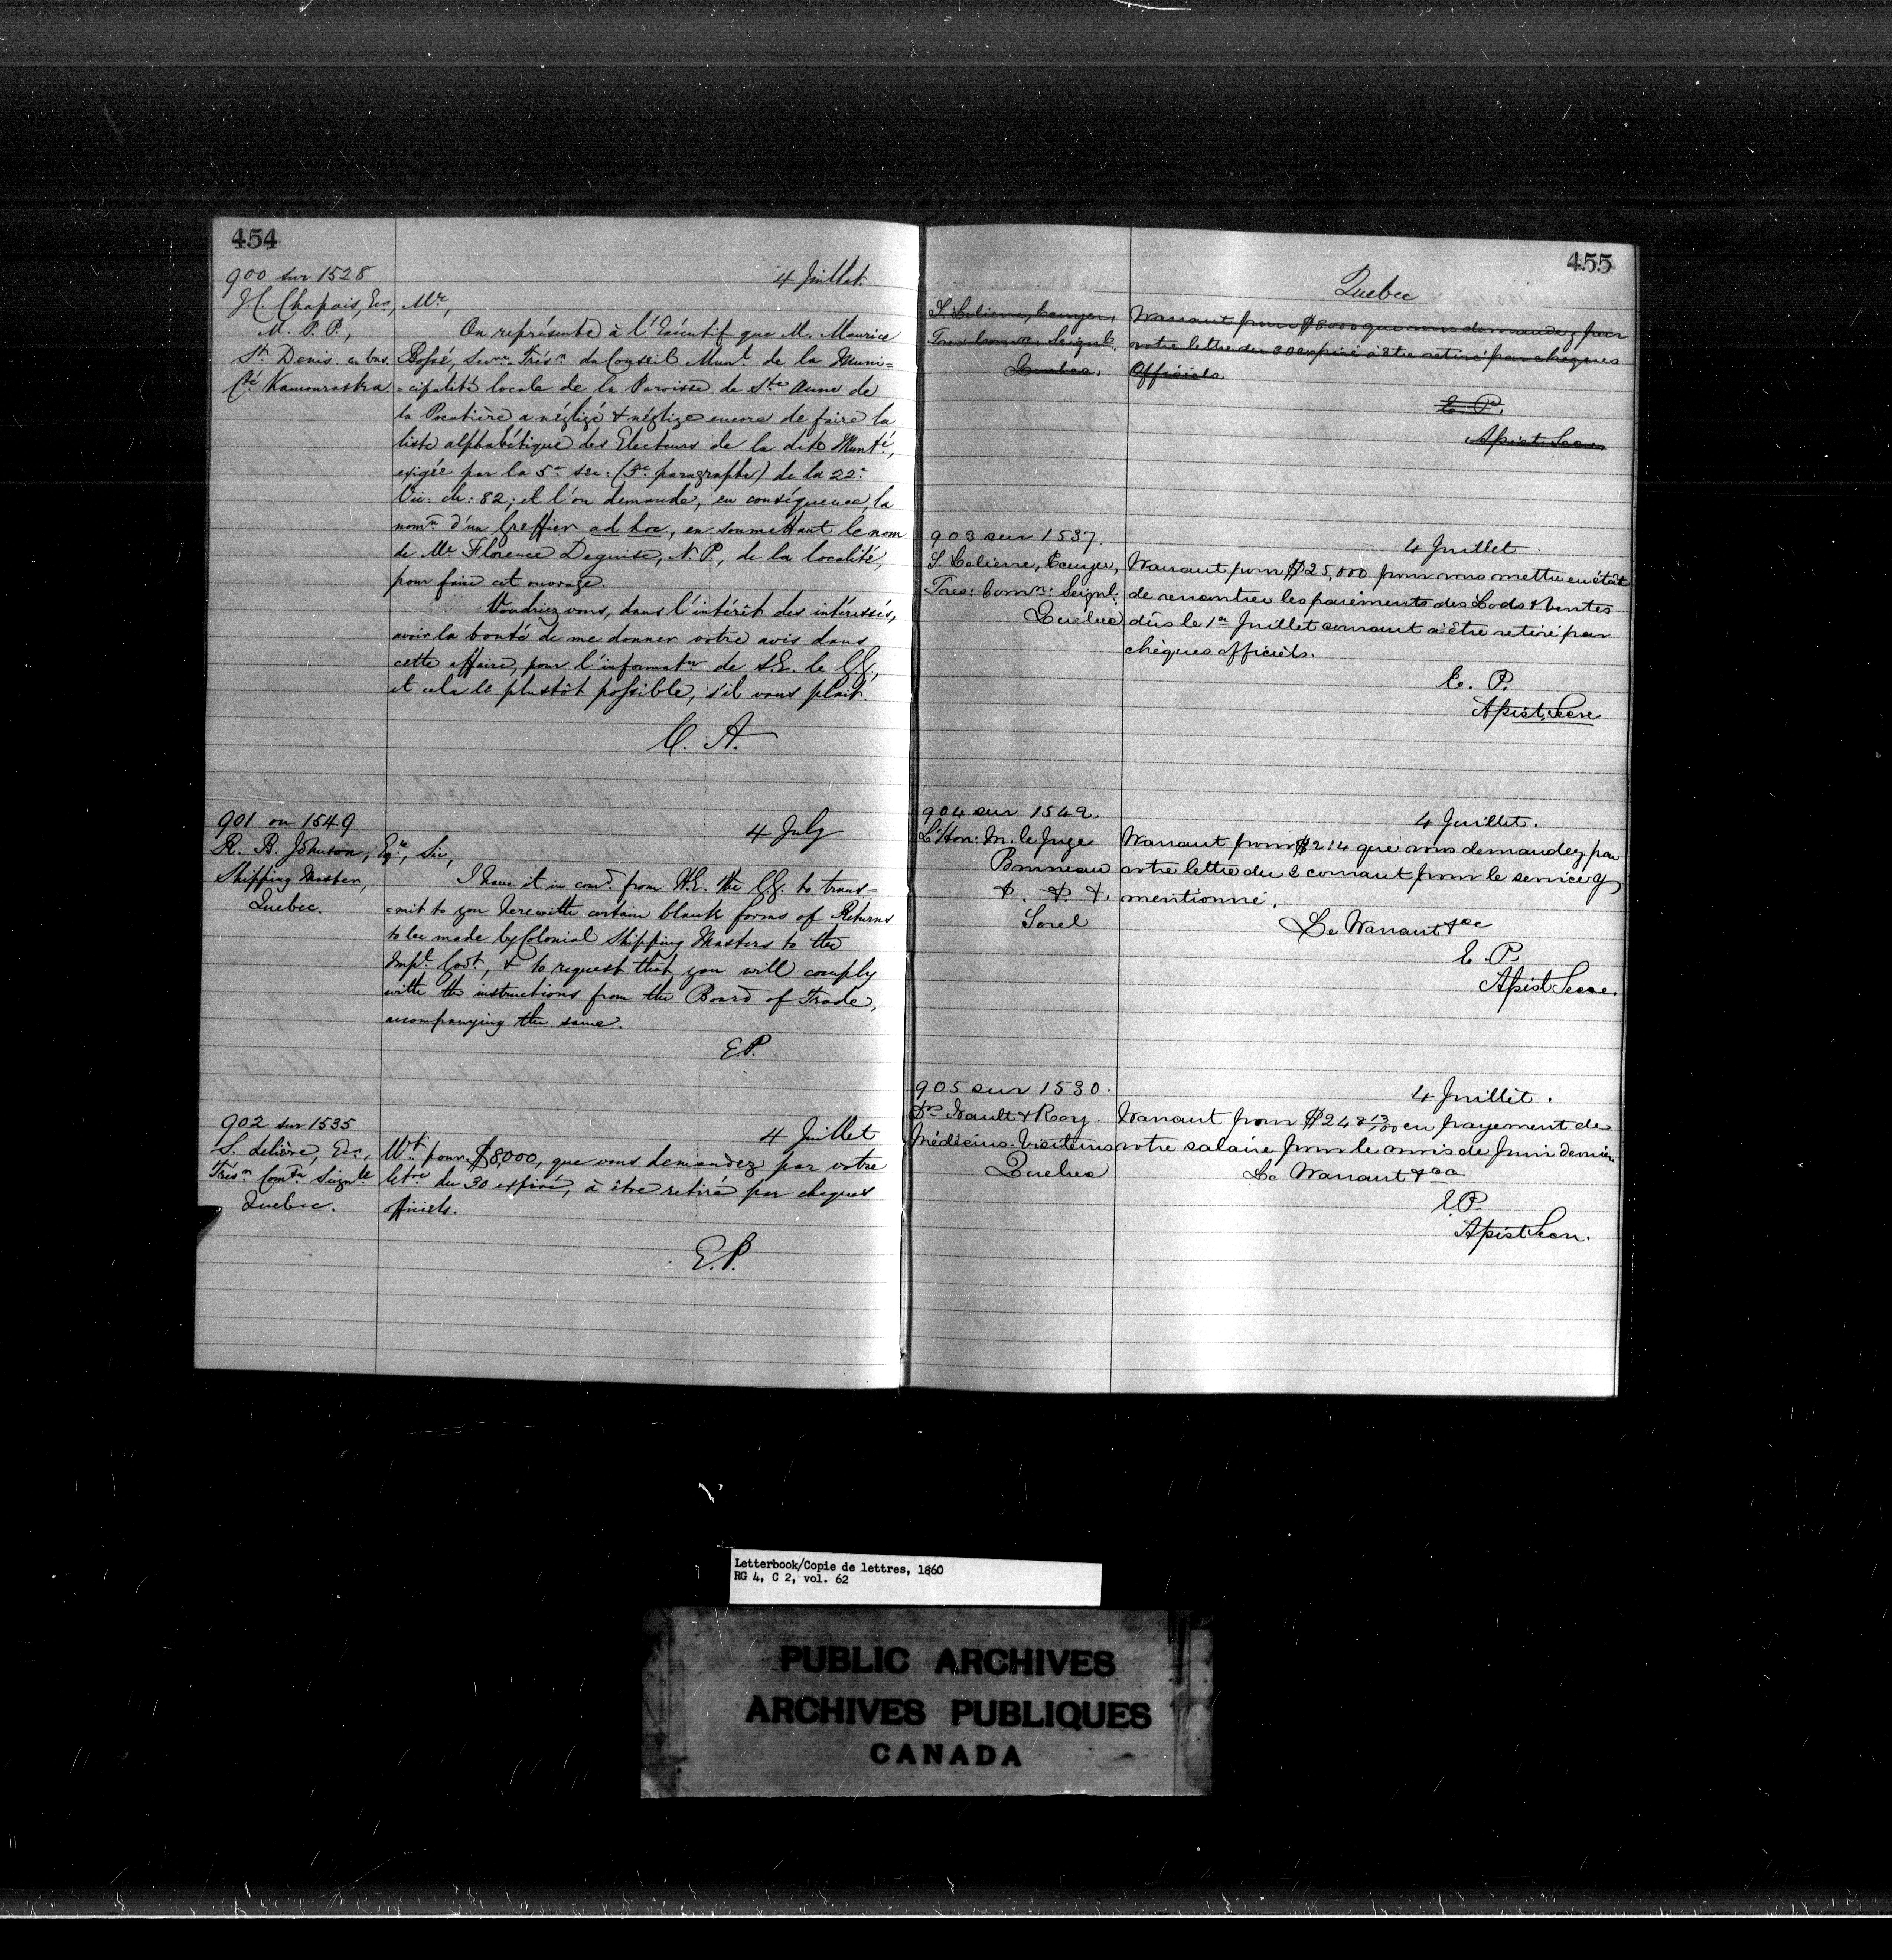 454
900 sur 1528
4 Juillet.
J. C. Chapais, Ecr,
M. P. P.,
St Denis en bas
Cté Kamouraska.
Mr,
On représente à l'Exécutif que M. Maurice
Bossé, Secre Trésr du Conseil Munl de la Muni=
=cipalité locale de la Paroisse de Ste Anne de
la Pocatière a négligé & néglige encore de faire la
liste alphabétique des Electeurs de la dite Munté,
exigée par la 5e sec: (3e paragraphe) de la 22e
Vic: ch: 82; et l'on demande, en conséquence, la
nomn d'un Greffier ad hoc, en soumettant le nom
de Mr Florence Deguise, N. P., de la localité,
pour faire cet ouvrage.
Voudriez vous, dans l'intérêt des intéressés,
avoir la bonté de me donner votre avis dans
cette affaire, pour l'informatn de S.E. le G.G.,
et cela le plustôt possible, s'il vous plait.
C. A.
901 on 1549
4 July
R. B. Johnson, Esqre,
Shipping Master,
Quebec.
Sir,
I have it in comd from H.E. the G.G. to trans=
=mit to you herewith certain blank forms of Returns
to be made by Colonial Shipping Masters to the
Impl Govt, & to request that you will comply
with the instructions from the Board of Trade,
accompanying the same.
E.P.
902 sur 1535
4 Juillet
S. Lelièvre, Ecr,
Trésr Comtn Seignle
Quebec.
Wt pour $8,000, que vous demandez par votre
letre du 30 expiré, à être retiré par cheques
officiels.
E.P.
455
Quebec
S. Lelievre, Ecuyer,
Tres: Comn: Seignl.
Quebec.
Warrant pour $8000 que vous demandez par
votre lettre du 30 expiré à être retiré par cheques
Officiels.
E. P.
Apist Secre
903 sur 1537.
4 Juillet.
S. Lelievre, Ecuyer,
Tres: Comn: Seignl.
Quebec
Warrant pour $25,000 pour vous mettre en état
de rencontrer les paiements des Lods & Ventes
dûs le 1er Juillet courant à être retiré par
chèques officiels.
E. P.
Apist Secre
904 sur 1542
4 Juillet.
L'Hon: M. le Juge
Bruneau
&. &. &.
Sorel
Warrant pour $2.14 que vous demandez par
votre lettre du 2 courant pour le service y
mentionné.
Le Warrant &ce
E. P.
Apist Secre.
905 sur 1530.
4 Juillet.
Drs Nault & Roy
Médecins-Visiteurs
Quebec
Warrant pour $248 13/00 en payement de
votre salaire pour le mois de Juin dernier
Le Warrant &ca
E.P.
Apist Secre.
Letterbook/Copie de lettres, 1860
RG 4, C 2, vol. 62
PUBLIC ARCHIVES
ARCHIVES PUBLIQUES
CANADA